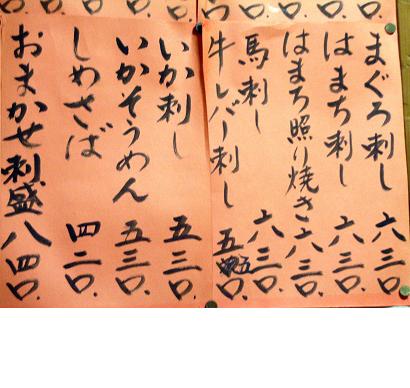 まぐろ刺し 六三〇.
はまち刺し 六三〇.
はまち照り焼き 六三〇.
馬刺し 八三〇.
牛レバー刺し 五三〇.
いか刺し 五三〇.
いかそうめん 五三〇.
しめさば 四二〇.
おまかせ刺盛 八四〇.